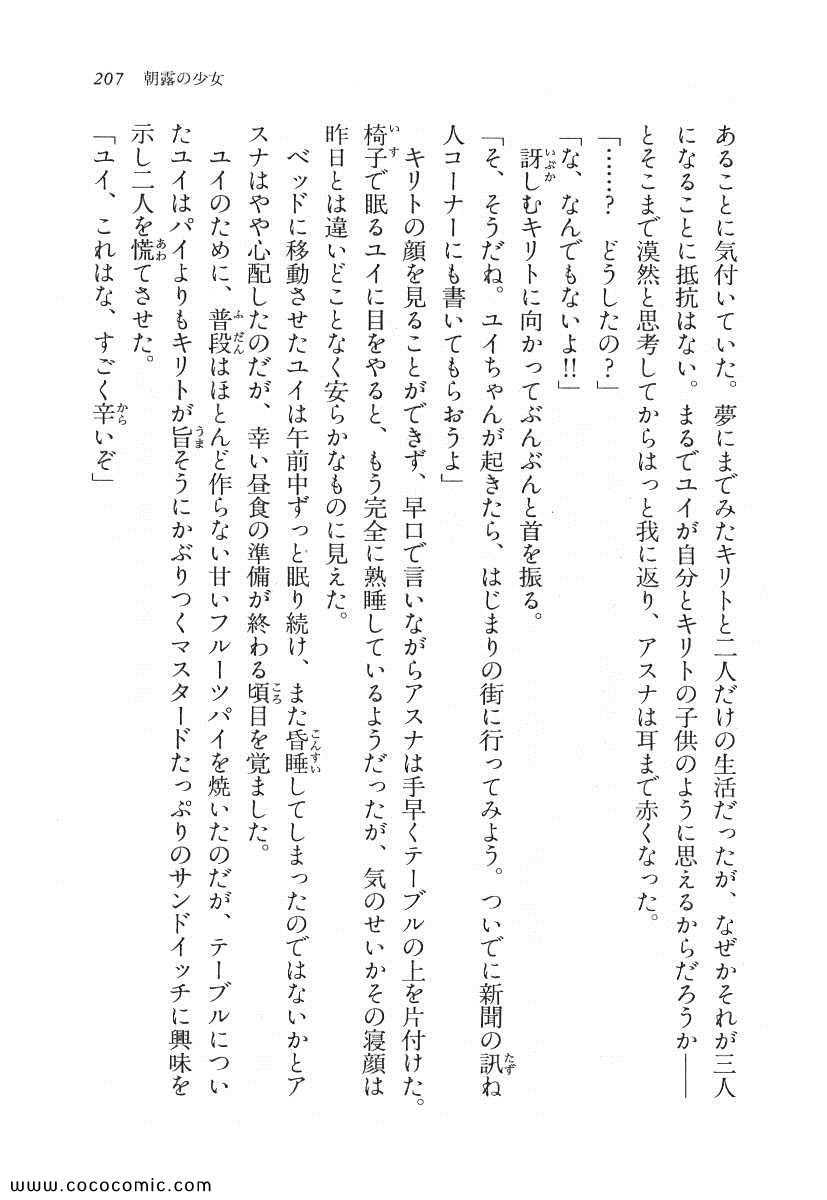 207 朝露の少女
あることに気付いていた。夢にまでみたキリトと二人だけの生活だったが、なぜかそれが三人
になることに抵抗はない。まるでユイが自分とキリトの子供のように思えるからだろうか――
とそこまで漠然と思考してからはっと我に返り、アスナは耳まで赤くなった。
「……？　どうしたの？」
「な、なんでもないよ!!」
訝しむキリトに向かってぶんぶんと首を振る。
「そ、そうだね。ユイちゃんが起きたら、はじまりの街に行ってみよう。ついでに新聞の訊ね
人コーナーにも書いてもらおうよ」
キリトの顔を見ることができず、早口で言いながらアスナは手早くテーブルの上を片付けた。
椅子で眠るユイに目をやると、もう完全に熟睡しているようだったが、気のせいかその寝顔は
昨日とは違いどことなく安らかなものに見えた。
ベッドに移動させたユイは午前中ずっと眠り続け、また昏睡してしまったのではないかとア
スナはやや心配したのだが、幸い昼食の準備が終わる頃目を覚ました。
ユイのために、普段はほとんど作らない甘いフルーツパイを焼いたのだが、テーブルについ
たユイはパイよりもキリトが旨そうにかぶりつくマスタードたっぷりのサンドイッチに興味を
示し二人を慌てさせた。
「ユイ、これはな、すごく辛いぞ」
www.cococomic.com/